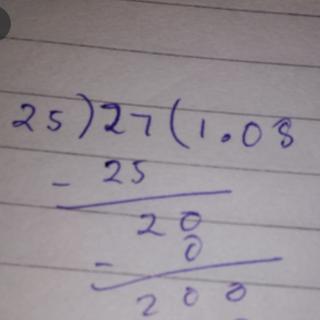 25)27(1.08
- 25
20
- 0
200